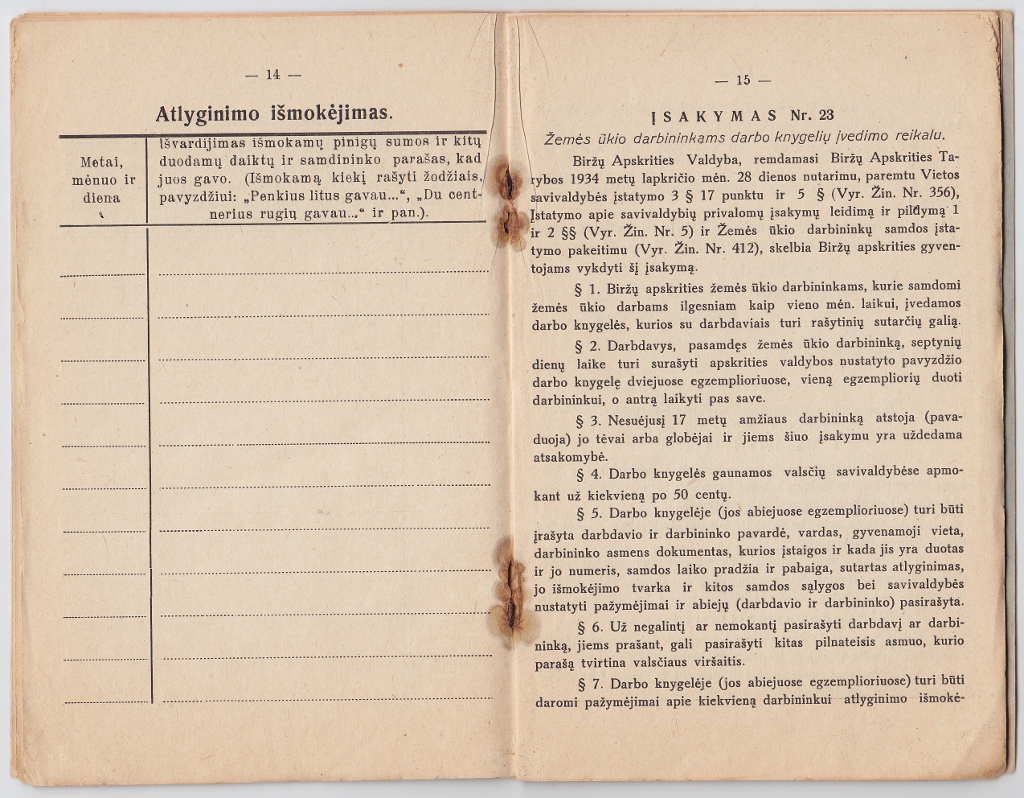 — 14 —
Atlyginimo išmokėjimas.
Metai,
mėnuo ir
diena
Išvardijimas išmokamų pinigų sumos ir kitų
duodamų daiktų ir samdininko parašas, kad
juos gavo. (Išmokamą kiekį rašyti žodžiais,
pavyzdžiui: „Penkius litus gavau...“, „Du cent-
nerius rugių gavau...“ ir pan.).
— 15 —
ĮSAKYMAS Nr. 23
Žemės ūkio darbininkams darbo knygelių įvedimo reikalu.
Biržų Apskrities Valdyba, remdamasi Biržų Apskrities Ta-
rybos 1934 metų lapkričio mėn. 28 dienos nutarimu, paremtu Vietos
savivaldybės įstatymo 3 § 17 punktu ir 5 § (Vyr. Žin. Nr. 356),
Įstatymo apie savivaldybių privalomų įsakymų leidimą ir pildymą 1
ir 2 §§ (Vyr. Žin. Nr. 5) ir Žemės ūkio darbininkų samdos įsta-
tymo pakeitimu (Vyr. Žin. Nr. 412), skelbia Biržų apskrities gyven-
tojams vykdyti šį įsakymą.
§ 1. Biržų apskrities žemės ūkio darbininkams, kurie samdomi
žemės ūkio darbams ilgesniam kaip vieno mėn. laikui, įvedamos
darbo knygelės, kurios su darbdaviais turi rašytinių sutarčių galią.
§ 2. Darbdavys, pasamdęs žemės ūkio darbininką, septynių
dienų laike turi surašyti apskrities valdybos nustatyto pavyzdžio
darbo knygelę dviejuose egzemplioriuose, vieną egzempliorių duoti
darbininkui, o antrą laikyti pas save.
§ 3. Nesuėjusį 17 metų amžiaus darbininką atstoja (pava-
duoja) jo tėvai arba globėjai ir jiems šiuo įsakymu yra uždedama
atsakomybė.
§ 4. Darbo knygelės gaunamos valsčių savivaldybėse apmo-
kant už kiekvieną po 50 centų.
§ 5. Darbo knygelėje (jos abiejuose egzemplioriuose) turi būti
įrašyta darbdavio ir darbininko pavardė, vardas, gyvenamoji vieta,
darbininko asmens dokumentas, kurios įstaigos ir kada jis yra duotas
ir jo numeris, samdos laiko pradžia ir pabaiga, sutartas atlyginimas,
jo išmokėjimo tvarka ir kitos samdos sąlygos bei savivaldybės
nustatyti pažymėjimai ir abiejų (darbdavio ir darbininko) pasirašyta.
§ 6. Už negalintį ar nemokantį pasirašyti darbdavį ar darbi-
ninką, jiems prašant, gali pasirašyti kitas pilnateisis asmuo, kurio
parašą tvirtina valsčiaus viršaitis.
§ 7. Darbo knygelėje (jos abiejuose egzemplioriuose) turi būti
daromi pažymėjimai apie kiekvieną darbininkui atlyginimo išmokė-